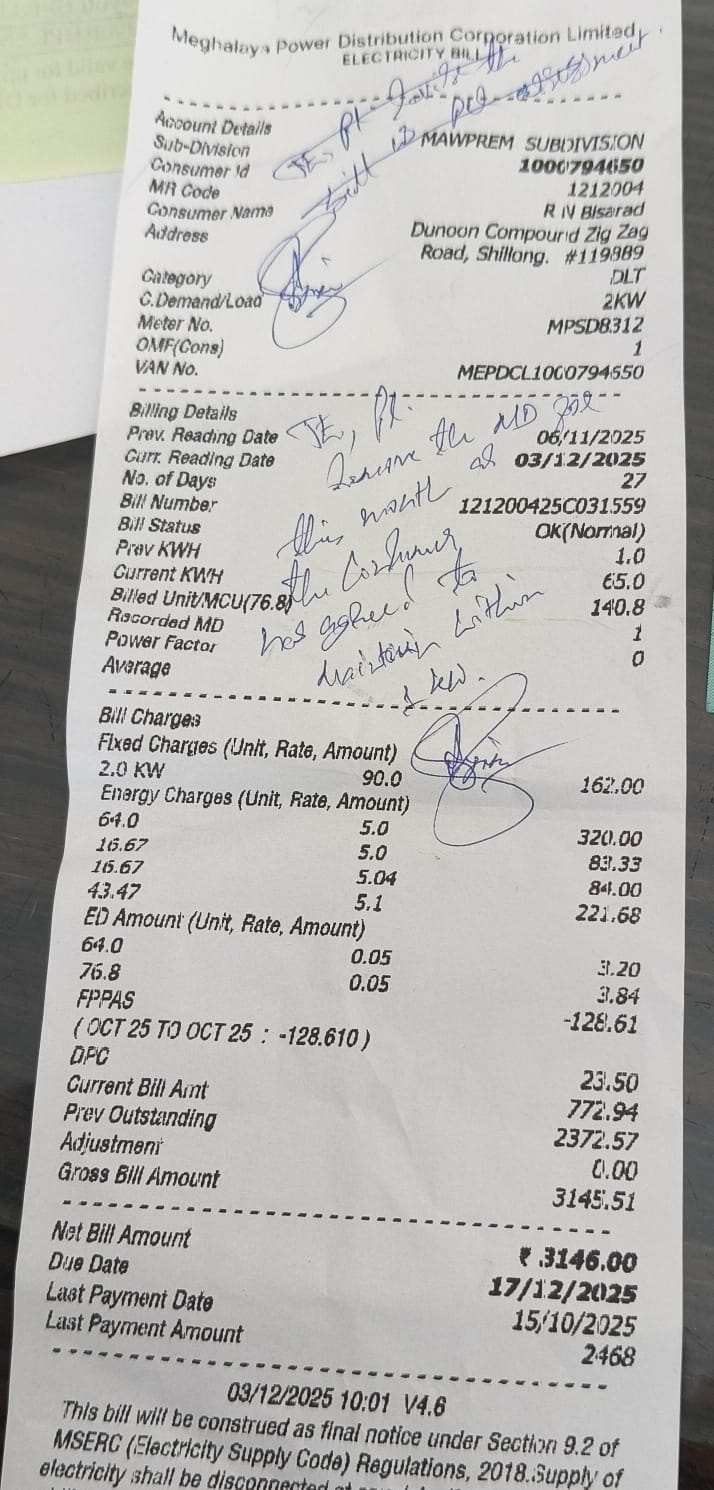 Meghalaya Power Distribution Corporation Limited
ELECTRICITY BILL
JE, Pl. the
bill
Account Details
Sub-Division MAWPREM SUBDIVISION
Consumer Id 1000794650
MR Code 1212004
Consumer Name R N Bisarad
Address Dunoon Compound Zig Zag
Road, Shillong. #119889
Category DLT
C.Demand/Load 2KW
Meter No. MPSD8312
OMF(Cons) 1
VAN No. MEPDCL1000794650
Billing Details
Prev. Reading Date 06/11/2025
Curr. Reading Date 03/12/2025
No. of Days 27
Bill Number 121200425C031559
Bill Status OK(Normal)
Prev KWH 1.0
Current KWH 65.0
Billed Unit/MCU(76.8) 140.8
Recorded MD 1
Power Factor 0
Average
JE, Pl.
the MD for
this month as
the Consumer
has agreed to
maintain within
kw.
Bill Charges
Fixed Charges (Unit, Rate, Amount)
2.0 KW 90.0 162.00
Energy Charges (Unit, Rate, Amount)
64.0 5.0 320.00
16.67 5.0 83.33
16.67 5.04 84.00
43.47 5.1 221.68
ED Amount (Unit, Rate, Amount)
64.0 0.05 3.20
76.8 0.05 3.84
FPPAS -128.61
( OCT 25 TO OCT 25 : -128.610 )
DPC 23.50
Current Bill Amt 772.94
Prev Outstanding 2372.57
Adjustment 0.00
Gross Bill Amount 3145.51
Net Bill Amount ₹ 3146.00
Due Date 17/12/2025
Last Payment Date 15/10/2025
Last Payment Amount 2468
03/12/2025 10:01 V4.6
This bill will be construed as final notice under Section 9.2 of
MSERC (Electricity Supply Code) Regulations, 2018.Supply of
electricity shall be disconnected